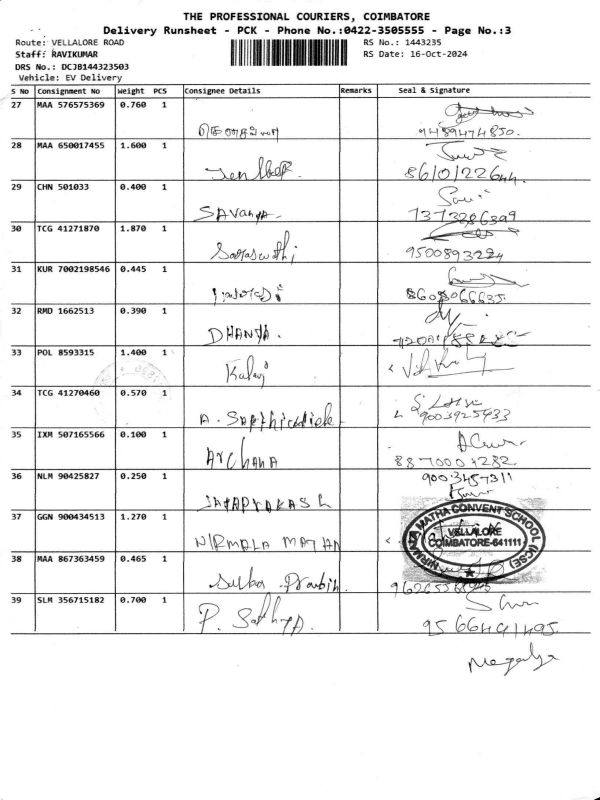 THE PROFESSIONAL COURIERS, COIMBATORE
Delivery Runsheet - PCK - Phone No.:0422-3505555 - Page No.:3
Route: VELLALORE ROAD RS No.: 1443235
Staff: RAVIKUMAR RS Date: 16-Oct-2024
DRS No.: DCJB144323503
Vehicle: EV Delivery
S No Consignment No Weight PCS Consignee Details Remarks Seal & Signature
27 MAA 576575369 0.760 1
9489474850.
28 MAA 650017455 1.600 1
8610122644
29 CHN 501033 0.400 1
SAVANYA. 7373286399
30 TCG 41271870 1.870 1
Saraswathi 9500893224
31 KUR 7002198546 0.445 1
8608066635
32 RMD 1662513 0.390 1
DHANYA.
33 POL 8593315 1.400 1
Kalaj
34 TCG 41270460 0.570 1
A. 9003925433
35 IXM 507165566 0.100 1
ARCHANA 8870004282
36 NLM 90425827 0.250 1 9003457311
JAYAPRAKASH
37 GGN 900434513 1.270 1
NIRMALA MATHA
NIRMALA MATHA CONVENT SCHOOL (ICSE)
VELLALORE
COIMBATORE-641111
38 MAA 867363459 0.465 1
39 SLM 356715182 0.700 1
P. Sathya. 9566491495.